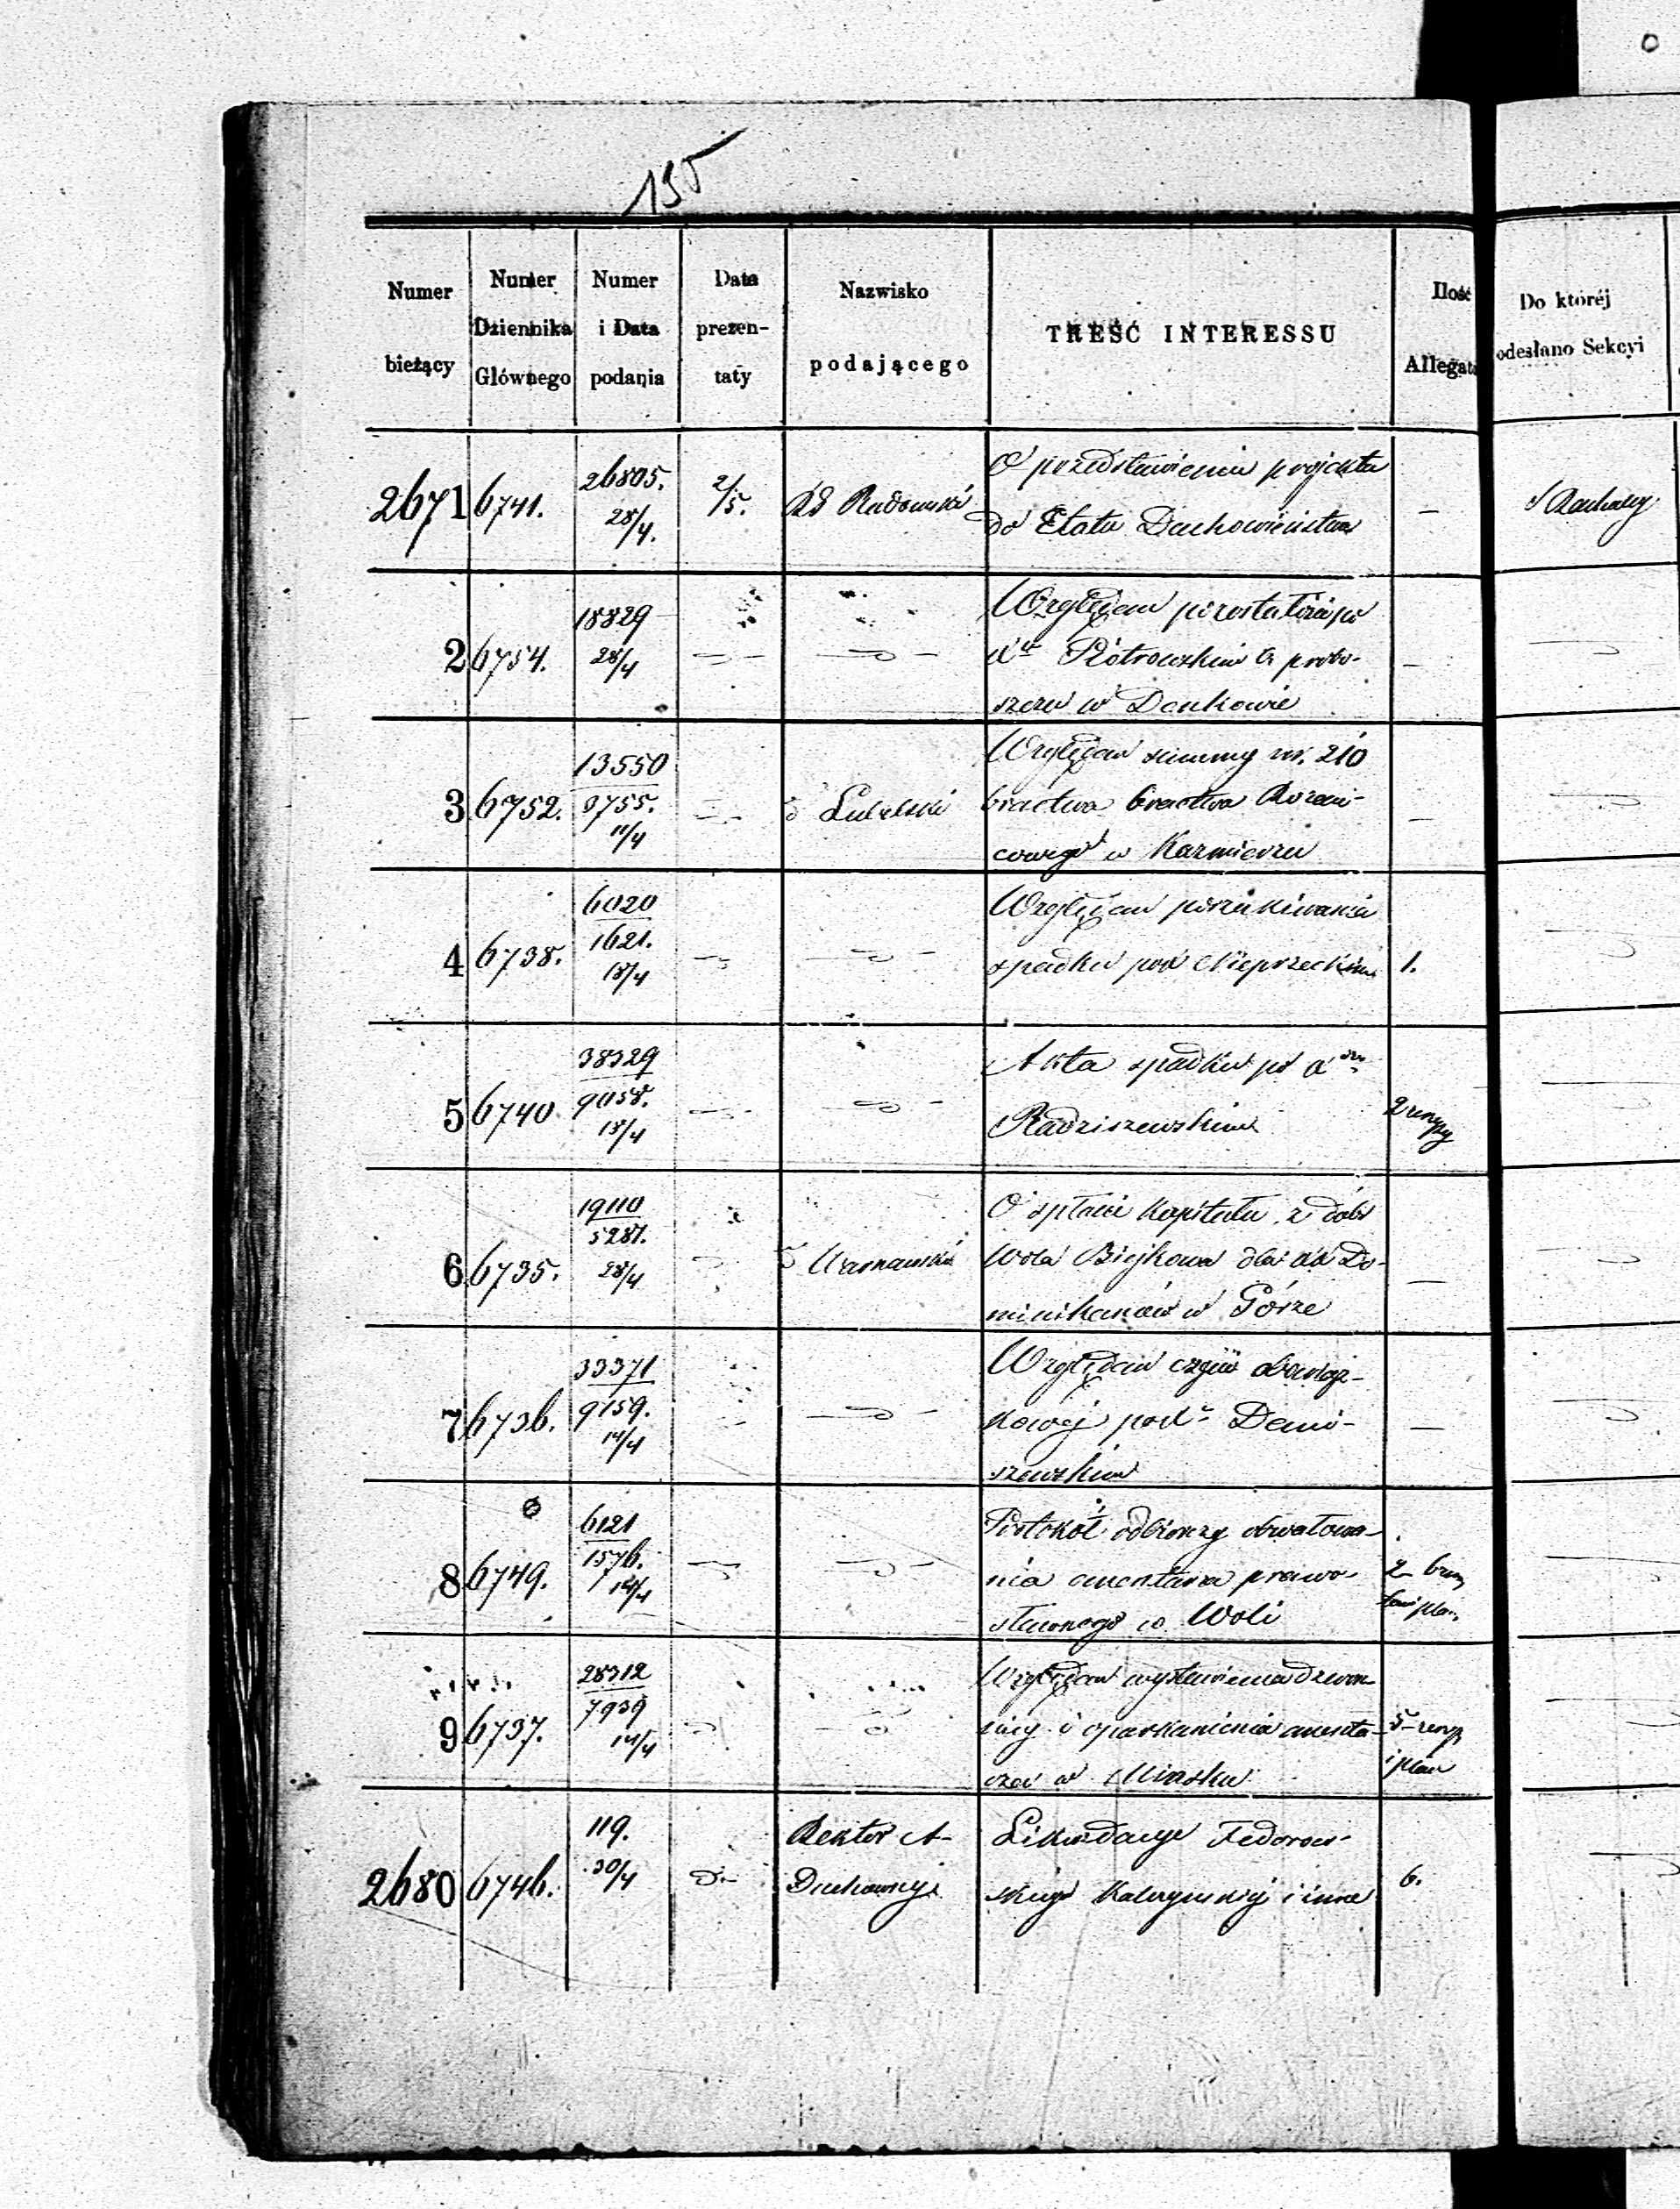 195
Numer bieżący
Numer Dziennika Głównego
Numer i Data podania
Data prezentaty
Nazwisko podającego
TREŚĆ INTERESSU
Ilość Allegat
Do któréj odesłano Sekcyi
2671 6741. 26805. 28/4. 2/5. Radomski
O przedstawieniu projektu
do Etatu Duchowieństwa
—
2 6754. 18829 28/4
Względem pozostałości po
Piotrowskim probo-
szczu w Dankowie
—
3 6752. 13550 9755. 11/4 Lubelski
Względem summy rs. 210
bractwa bractwa Różań-
cowego w Kazmierzu
—
4 6738. 6020 1621. 18/4
Względem poszukiwania
spadku pod
1.
5 6740 38329 9058. 18/4
Akta spadku po
Radziszewskim
2
6 6735. 19110 5281. 28/4 Warszawski
O spłacie kapitału z dóbr
Wola Biejkowa dla XX Do-
minikanów w Górze
—
7 6736. 33371 9159. 14/4
Względem
—
szewskim
8 6749. 6121 1576. 14/4
Protokół odbiorczy obwałowa-
nia cmentarza prawo-
sławnego w Woli
2
9 6737. 28312 7939 14/4
Względem wystawienia dzwon-
nicy i oparkanienia cmenta-
rza w Mińsku
5
i plan
2680 6746. 119. 30/4
Rektor A-
Duchownej
Likwidacye Fedorow-
skiego i inne
6.